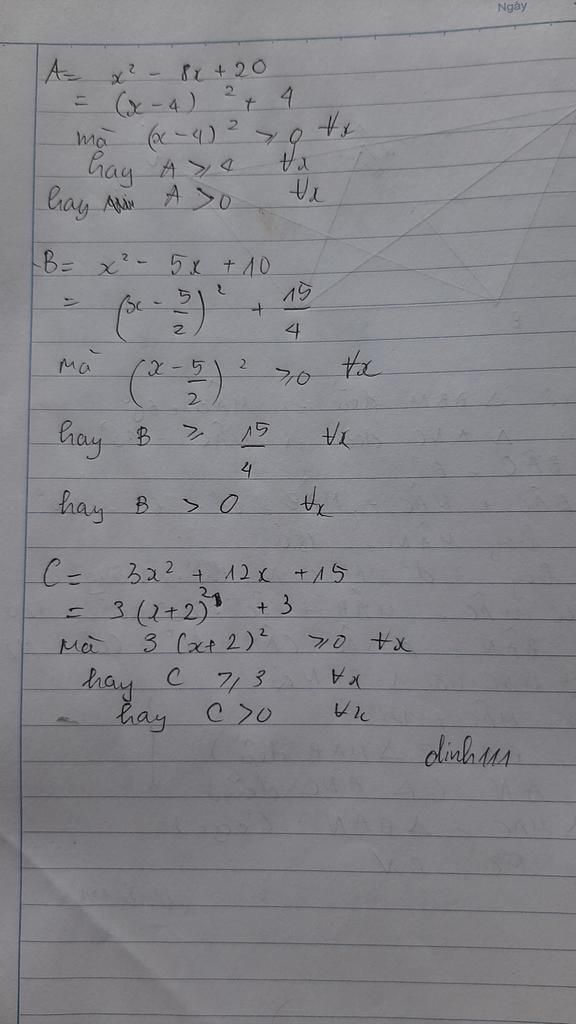 Ngày
A = x² - 8x + 20
= (x-4)² + 4
mà (x-4)² ⩾ 0 ∀x
hay A ⩾ 4 ∀x
hay A > 0 ∀x
B = x² - 5x + 10
= (x - 5/2)² + 15/4
mà (x - 5/2)² ⩾ 0 ∀x
hay B ⩾ 15/4 ∀x
hay B > 0 ∀x
C = 3x² + 12x + 15
= 3(x+2)² + 3
mà 3(x+2)² ⩾ 0 ∀x
hay C ⩾ 3 ∀x
hay C > 0 ∀x
dinh111